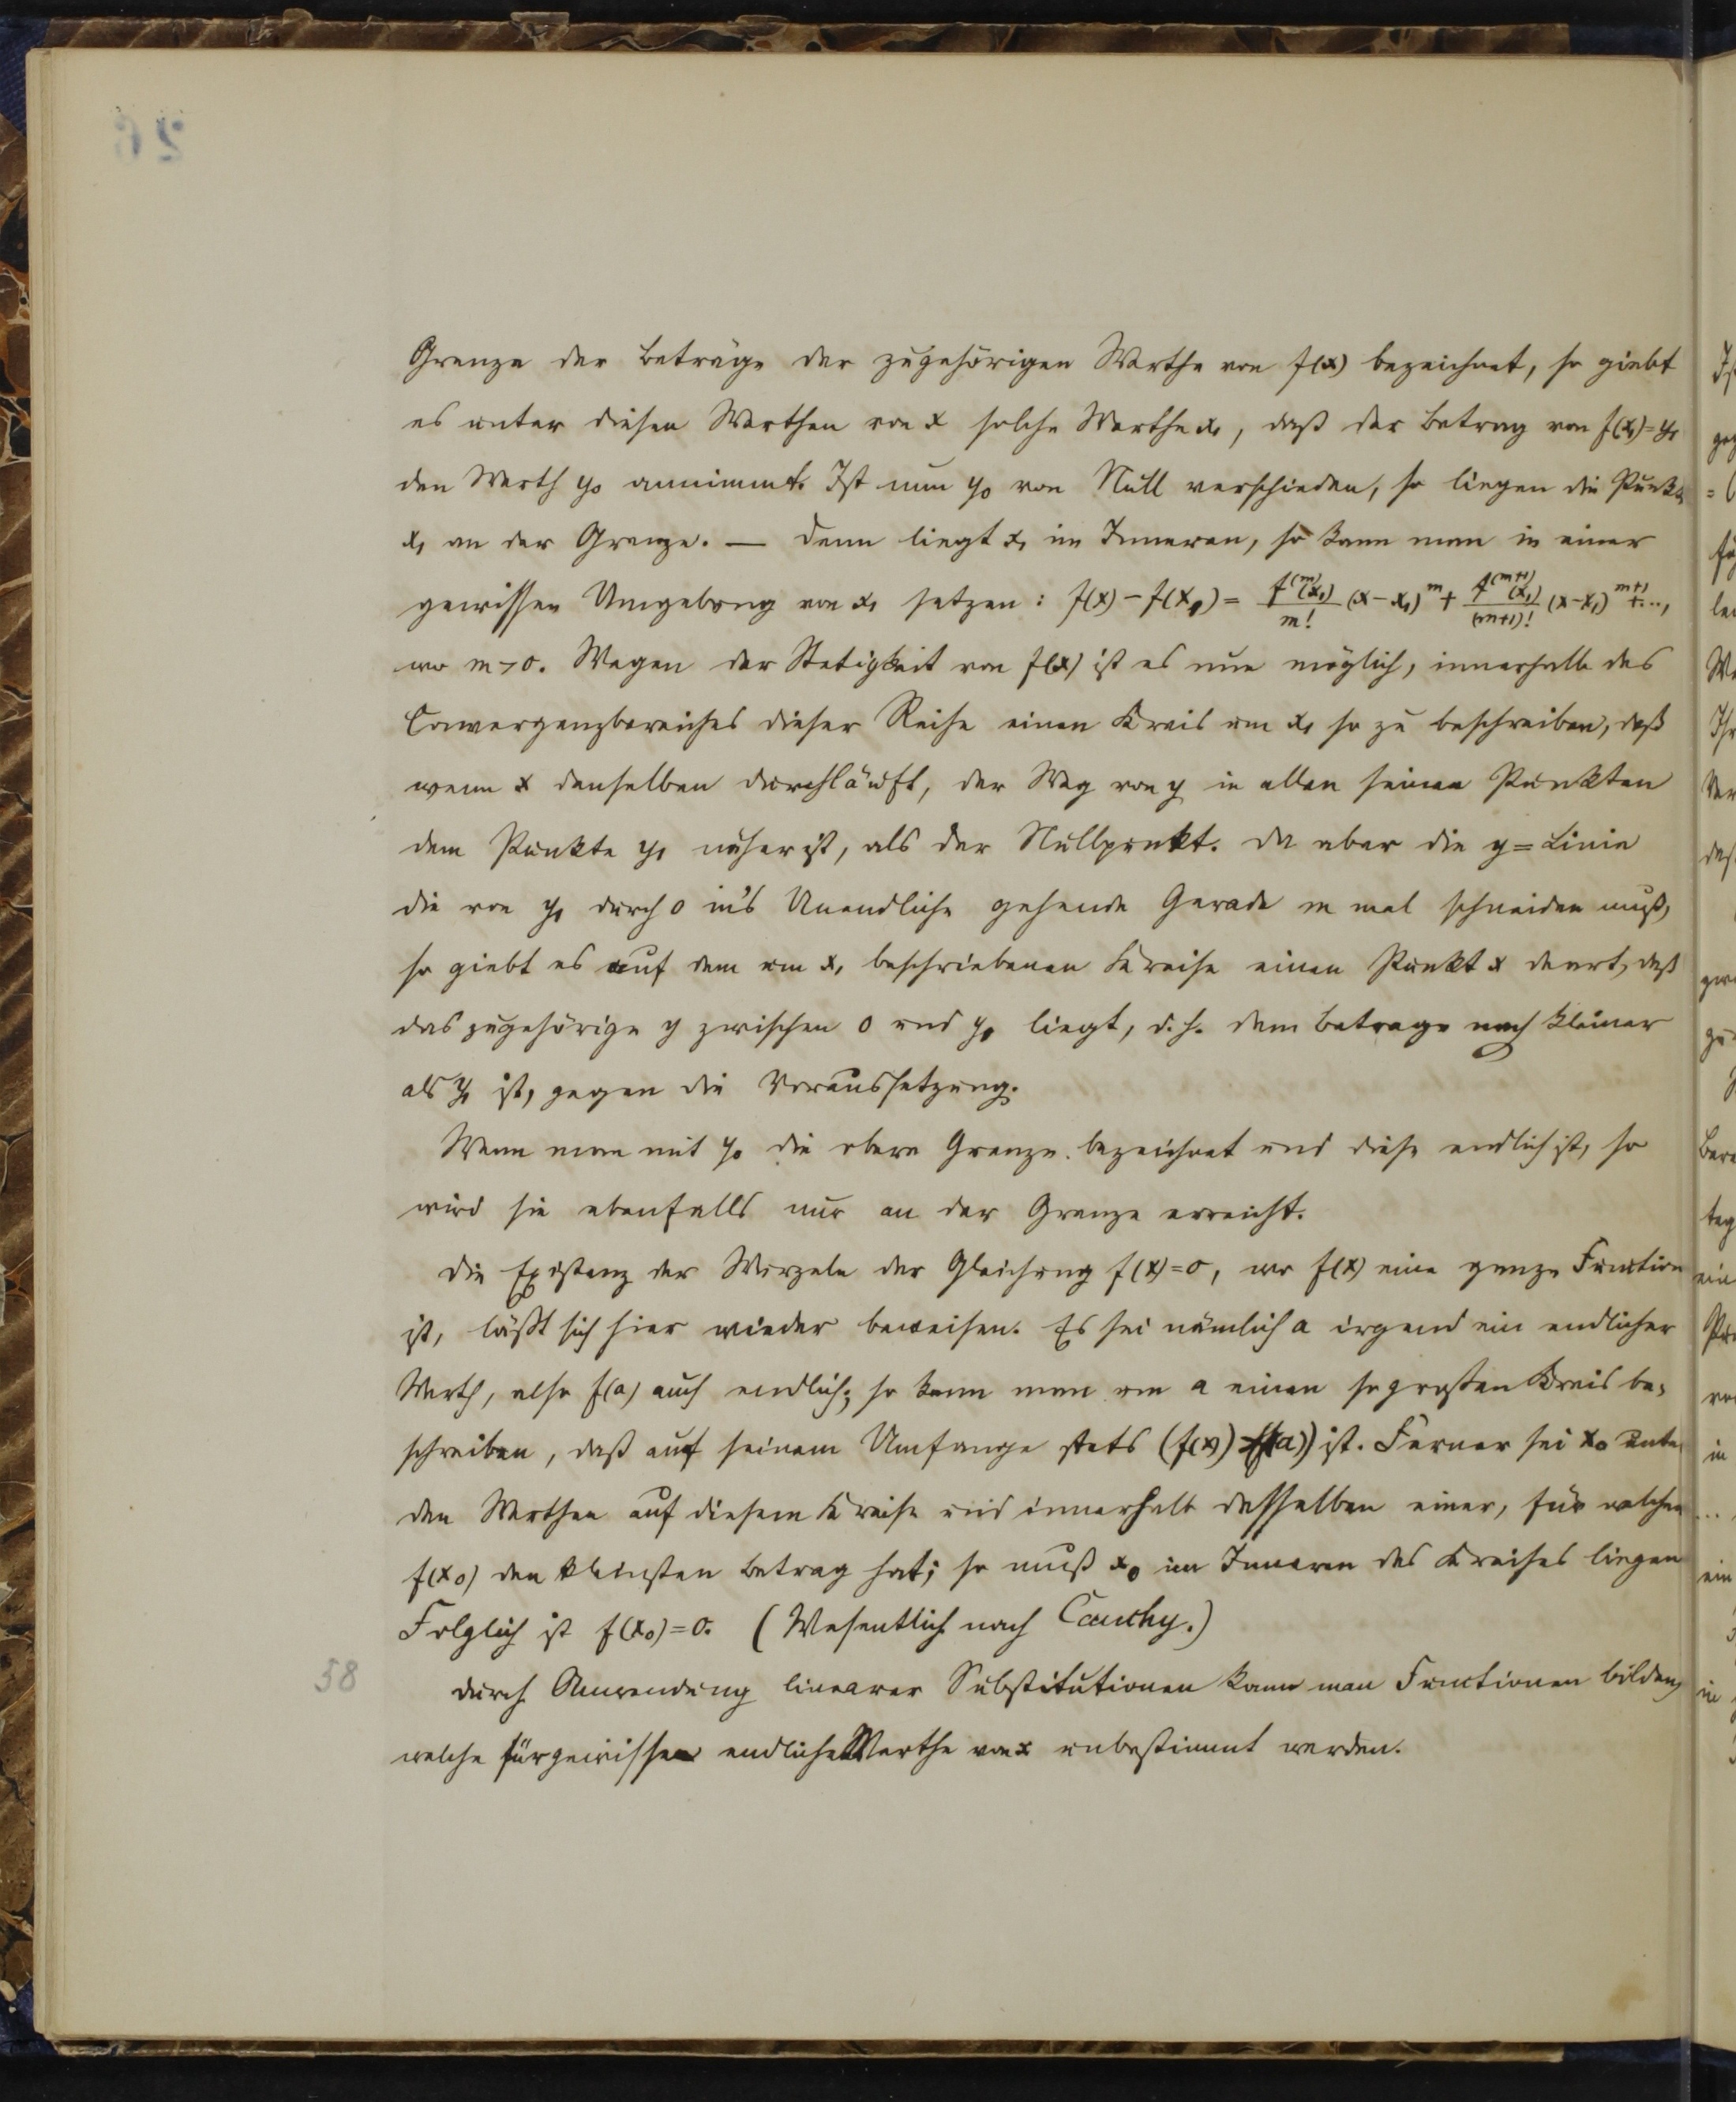 Grenze der Beträge der zugehörigen Werthe von f(x) bezeichnet, so giebt
es unter diesen Werthen von x solche Werthe x₁, daß der Betrag von f(x₁)=y₁
den Werth y₀ annimmt. Ist nun y₀ von Null verschieden, so liegen die Punkte
x₁ an der Grenze. — Denn liegt x₁ im Inneren, so kann man in einer
gewissen Umgebung von x₁ setzen: f(x) − f(x₁) = f⁽ᵐ⁾(x₁)/m! (x−x₁)ᵐ + f⁽ᵐ⁺¹⁾(x₁)/(m+1)! (x−x₁)ᵐ⁺¹ + ...,
wo m>0. Wegen der Stetigkeit von f(x) ist es nun möglich, innerhalb des
Convergenzbereiches dieser Reihe einen Kreis um x₁ so zu beschreiben, daß
wenn x denselben durchläuft, der Weg von y in allen seinen Punkten
dem Punkte y₁ näher ist, als der Nullpunkt. Da aber die y=Linie
die von y₁ durch 0 in's Unendliche gehende Gerade m mal schneiden muß,
so giebt es auf dem um x₁ beschriebenen Kreise einen Punkt x derart, daß
das zugehörige y zwischen 0 und y₁ liegt, d. h. dem Betrage nach kleiner
als y₁ ist, gegen die Voraussetzung.
Wenn man mit y₀ die obere Grenze bezeichnet und diese endlich ist, so
wird sie ebenfalls nur an der Grenze erreicht.
Die Existenz der Wurzeln der Gleichung f(x)=0, wo f(x) eine ganze Function
ist, läßt sich hier wieder beweisen. Es sei nämlich a irgend ein endlicher
Werth, also f(a) auch endlich; so kann man um a einen so großen Kreis be-
schreiben, daß auf seinem Umfange stets (f(x)) > (f(a)) ist. Ferner sei x₀ unter
den Werthen auf diesem Kreise und innerhalb desselben einer, für welchen
f(x₀) den kleinsten Betrag hat; so muß x₀ im Inneren des Kreises liegen
Folglich ist f(x₀)=0. (Wesentlich nach Cauchy.)
58
Durch Anwendung linearer Substitutionen kann man Functionen bilden,
welche für gewisse endliche Werthe von x unbestimmt werden.